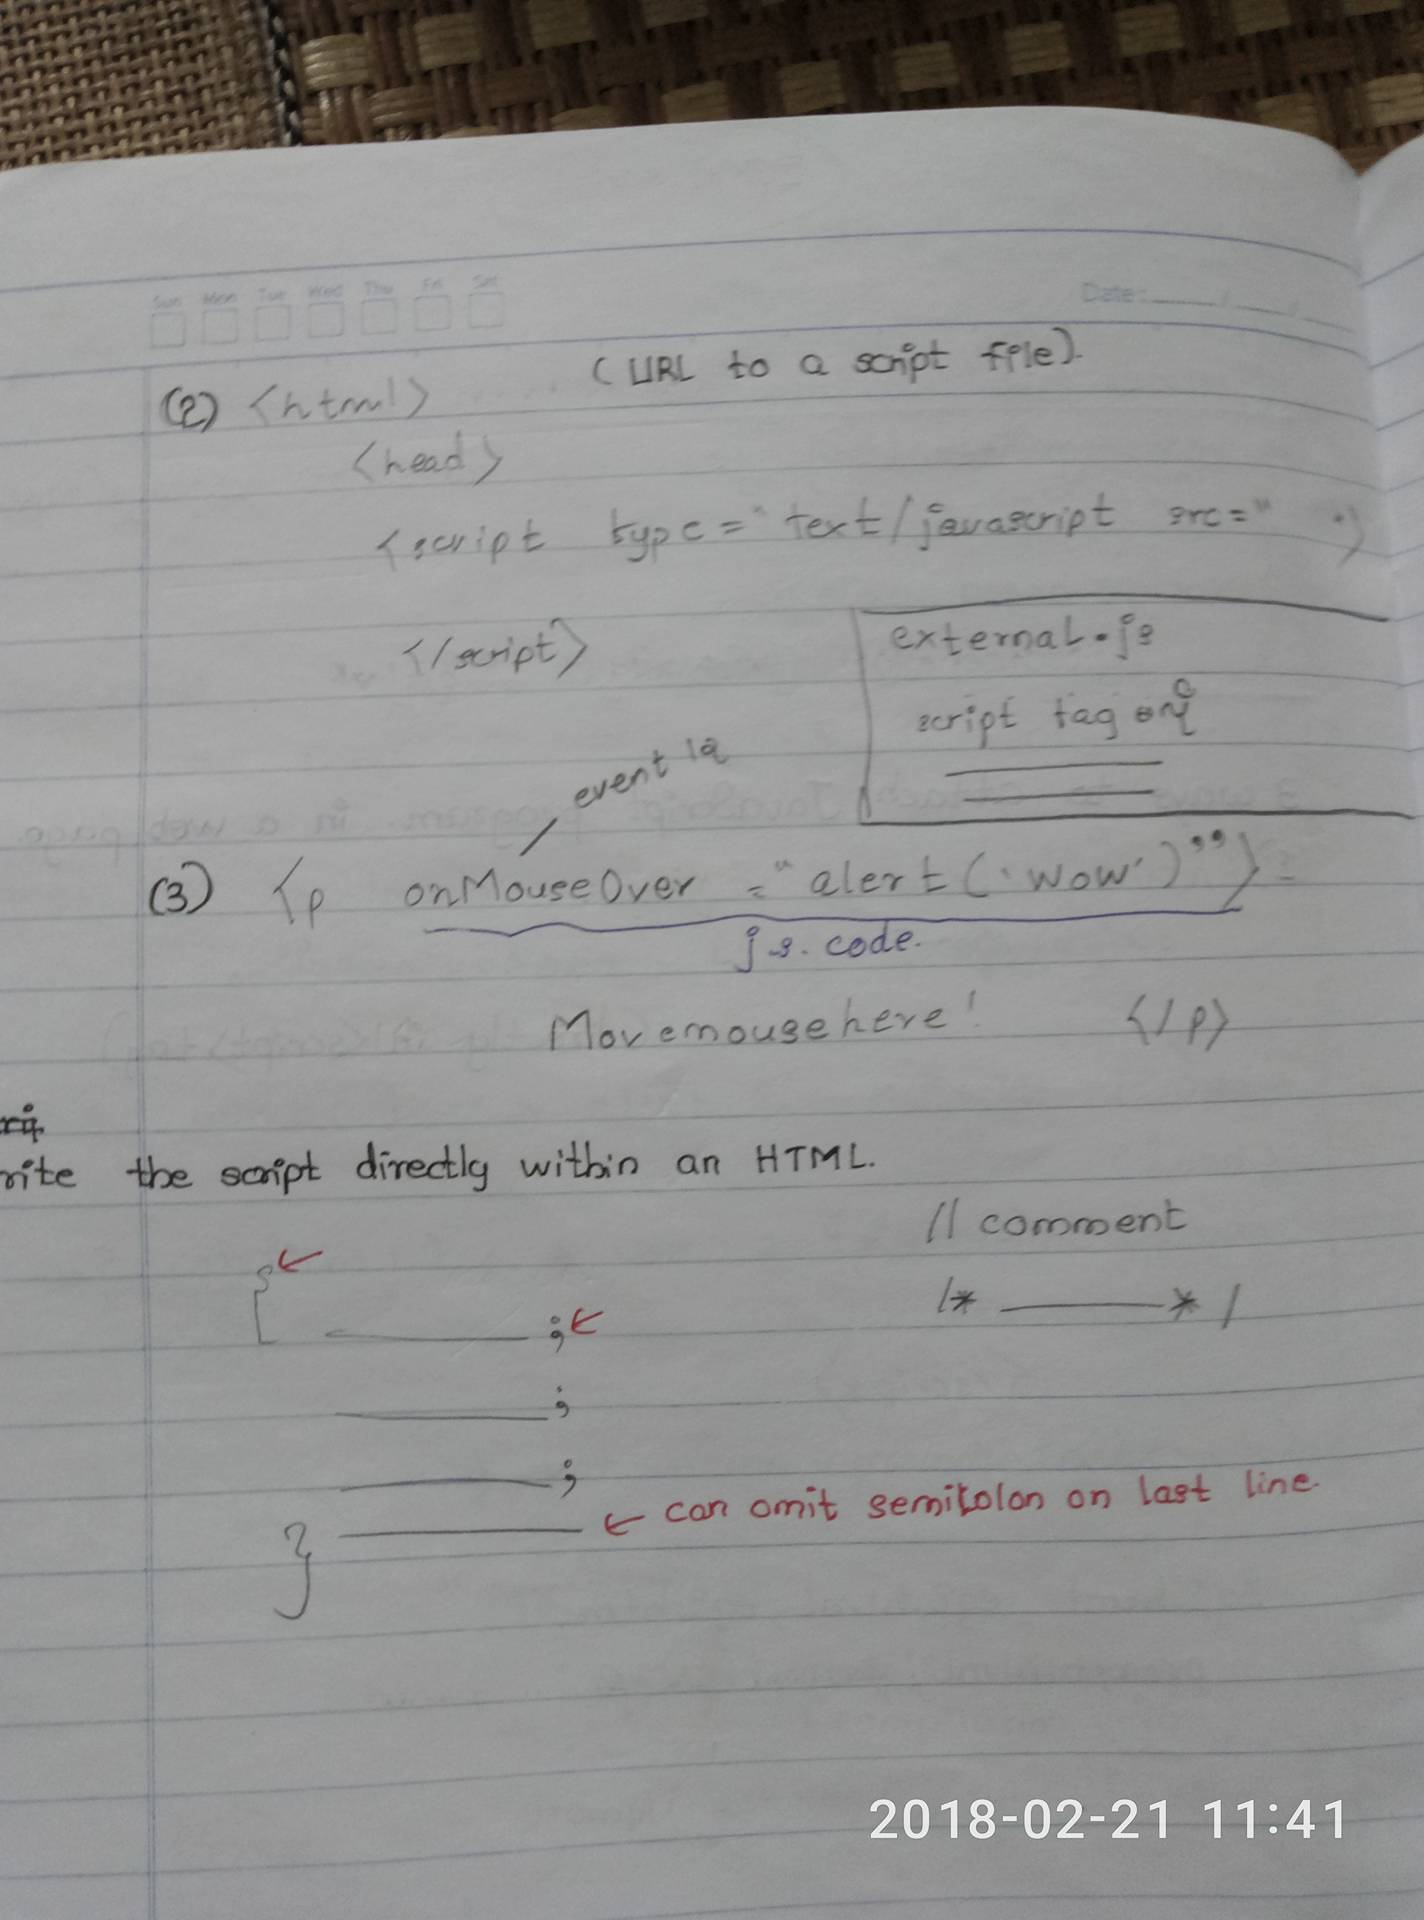 Sun Mon Tue Wed Thu Fri Sat
Date: ___/___/___
(URL to a script file).
(2) <html>
<head>
<script type = "text/javascript src=" ">
</script>
external.js
script tag
event
(3) <p onMouseOver = "alert('wow')">
js. code.
Movemousehere! </p>
rite the script directly within an HTML.
// comment
{
;
/* */
;
;
can omit semicolon on last line.
}
2018-02-21 11:41